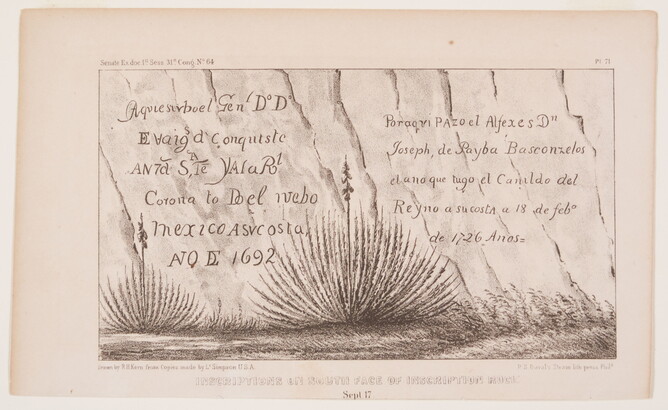 Senate Ex. doc 1st Sess 31st Cong. No 64
Pl 71
Aqui estubo el Genl. Do Do
E Vaigd Conquiste
ANTd S,Te Y Ala Rl
Corona to Del nvebo
Mexico Asvcosta,
AÑO DE 1692
Por aqui pazo el Alfexes Dn
Joseph, de Payba Basconzelos
el ano que tugo el Cauildo del
Reyno a su costa a 18 de febo
de 1726 Anos=
Drawn by R.H. Kern from Copies made by Lt Simpson U.S.A.
P.S. Duval's Steam lith. press Phila
INSCRIPTIONS ON SOUTH FACE OF INSCRIPTION ROCK
Sept 17